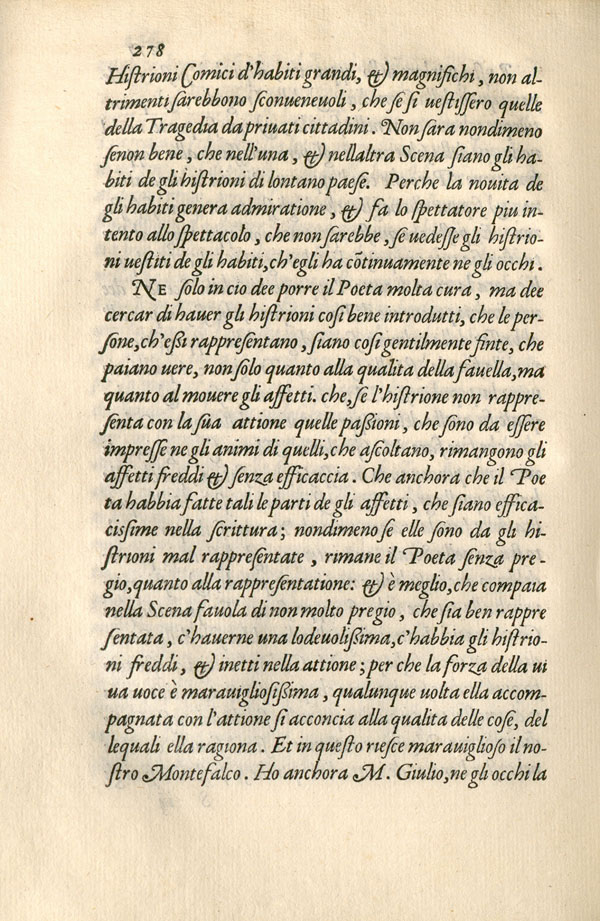 278
Hiſtrioni Comici d'habiti grandi, & magnifichi, non al-
trimenti ſarebbono ſconueneuoli, che ſe ſi ueſtiſſero quelle
della Tragedia da priuati cittadini. Non ſara nondimeno
ſenon bene, che nell'una, & nellaltra Scena ſiano gli ha-
biti de gli hiſtrioni di lontano paeſe. Perche la nouita de
gli habiti genera admiratione, & fa lo ſpettatore piu in-
tento allo ſpettacolo, che non ſarebbe, ſe uedeſſe gli hiſtrio-
ni ueſtiti de gli habiti, ch'egli ha cõtinuamente ne gli occhi.
NE ſolo in cio dee porre il Poeta molta cura, ma dee
cercar di hauer gli hiſtrioni coſi bene introdutti, che le per-
ſone, ch'eßi rappreſentano, ſiano coſi gentilmente finte, che
paiano uere, non ſolo quanto alla qualita della fauella, ma
quanto al mouere gli affetti. che, ſe l'hiſtrione non rappre-
ſenta con la ſua attione quelle paßioni, che ſono da eſſere
impreſſe ne gli animi di quelli, che aſcoltano, rimangono gli
affetti freddi & ſenza efficaccia. Che anchora che il Poe
ta habbia fatte tali le parti de gli affetti, che ſiano effica-
cißime nella ſcrittura; nondimeno ſe elle ſono da gli hi-
ſtrioni mal rappreſentate, rimane il Poeta ſenza pre-
gio, quanto alla rappreſentatione: & è meglio, che compaia
nella Scena fauola di non molto pregio, che ſia ben rappre
ſentata, c'hauerne una lodeuolißima, c'habbia gli hiſtrio-
ni freddi, & inetti nella attione; per che la forza della ui
ua uoce è marauiglioſißima, qualunque uolta ella accom-
pagnata con l'attione ſi acconcia alla qualita delle coſe, del
lequali ella ragiona. Et in queſto rieſce marauiglioſo il no-
ſtro Montefalco. Ho anchora M. Giulio, ne gli occhi la